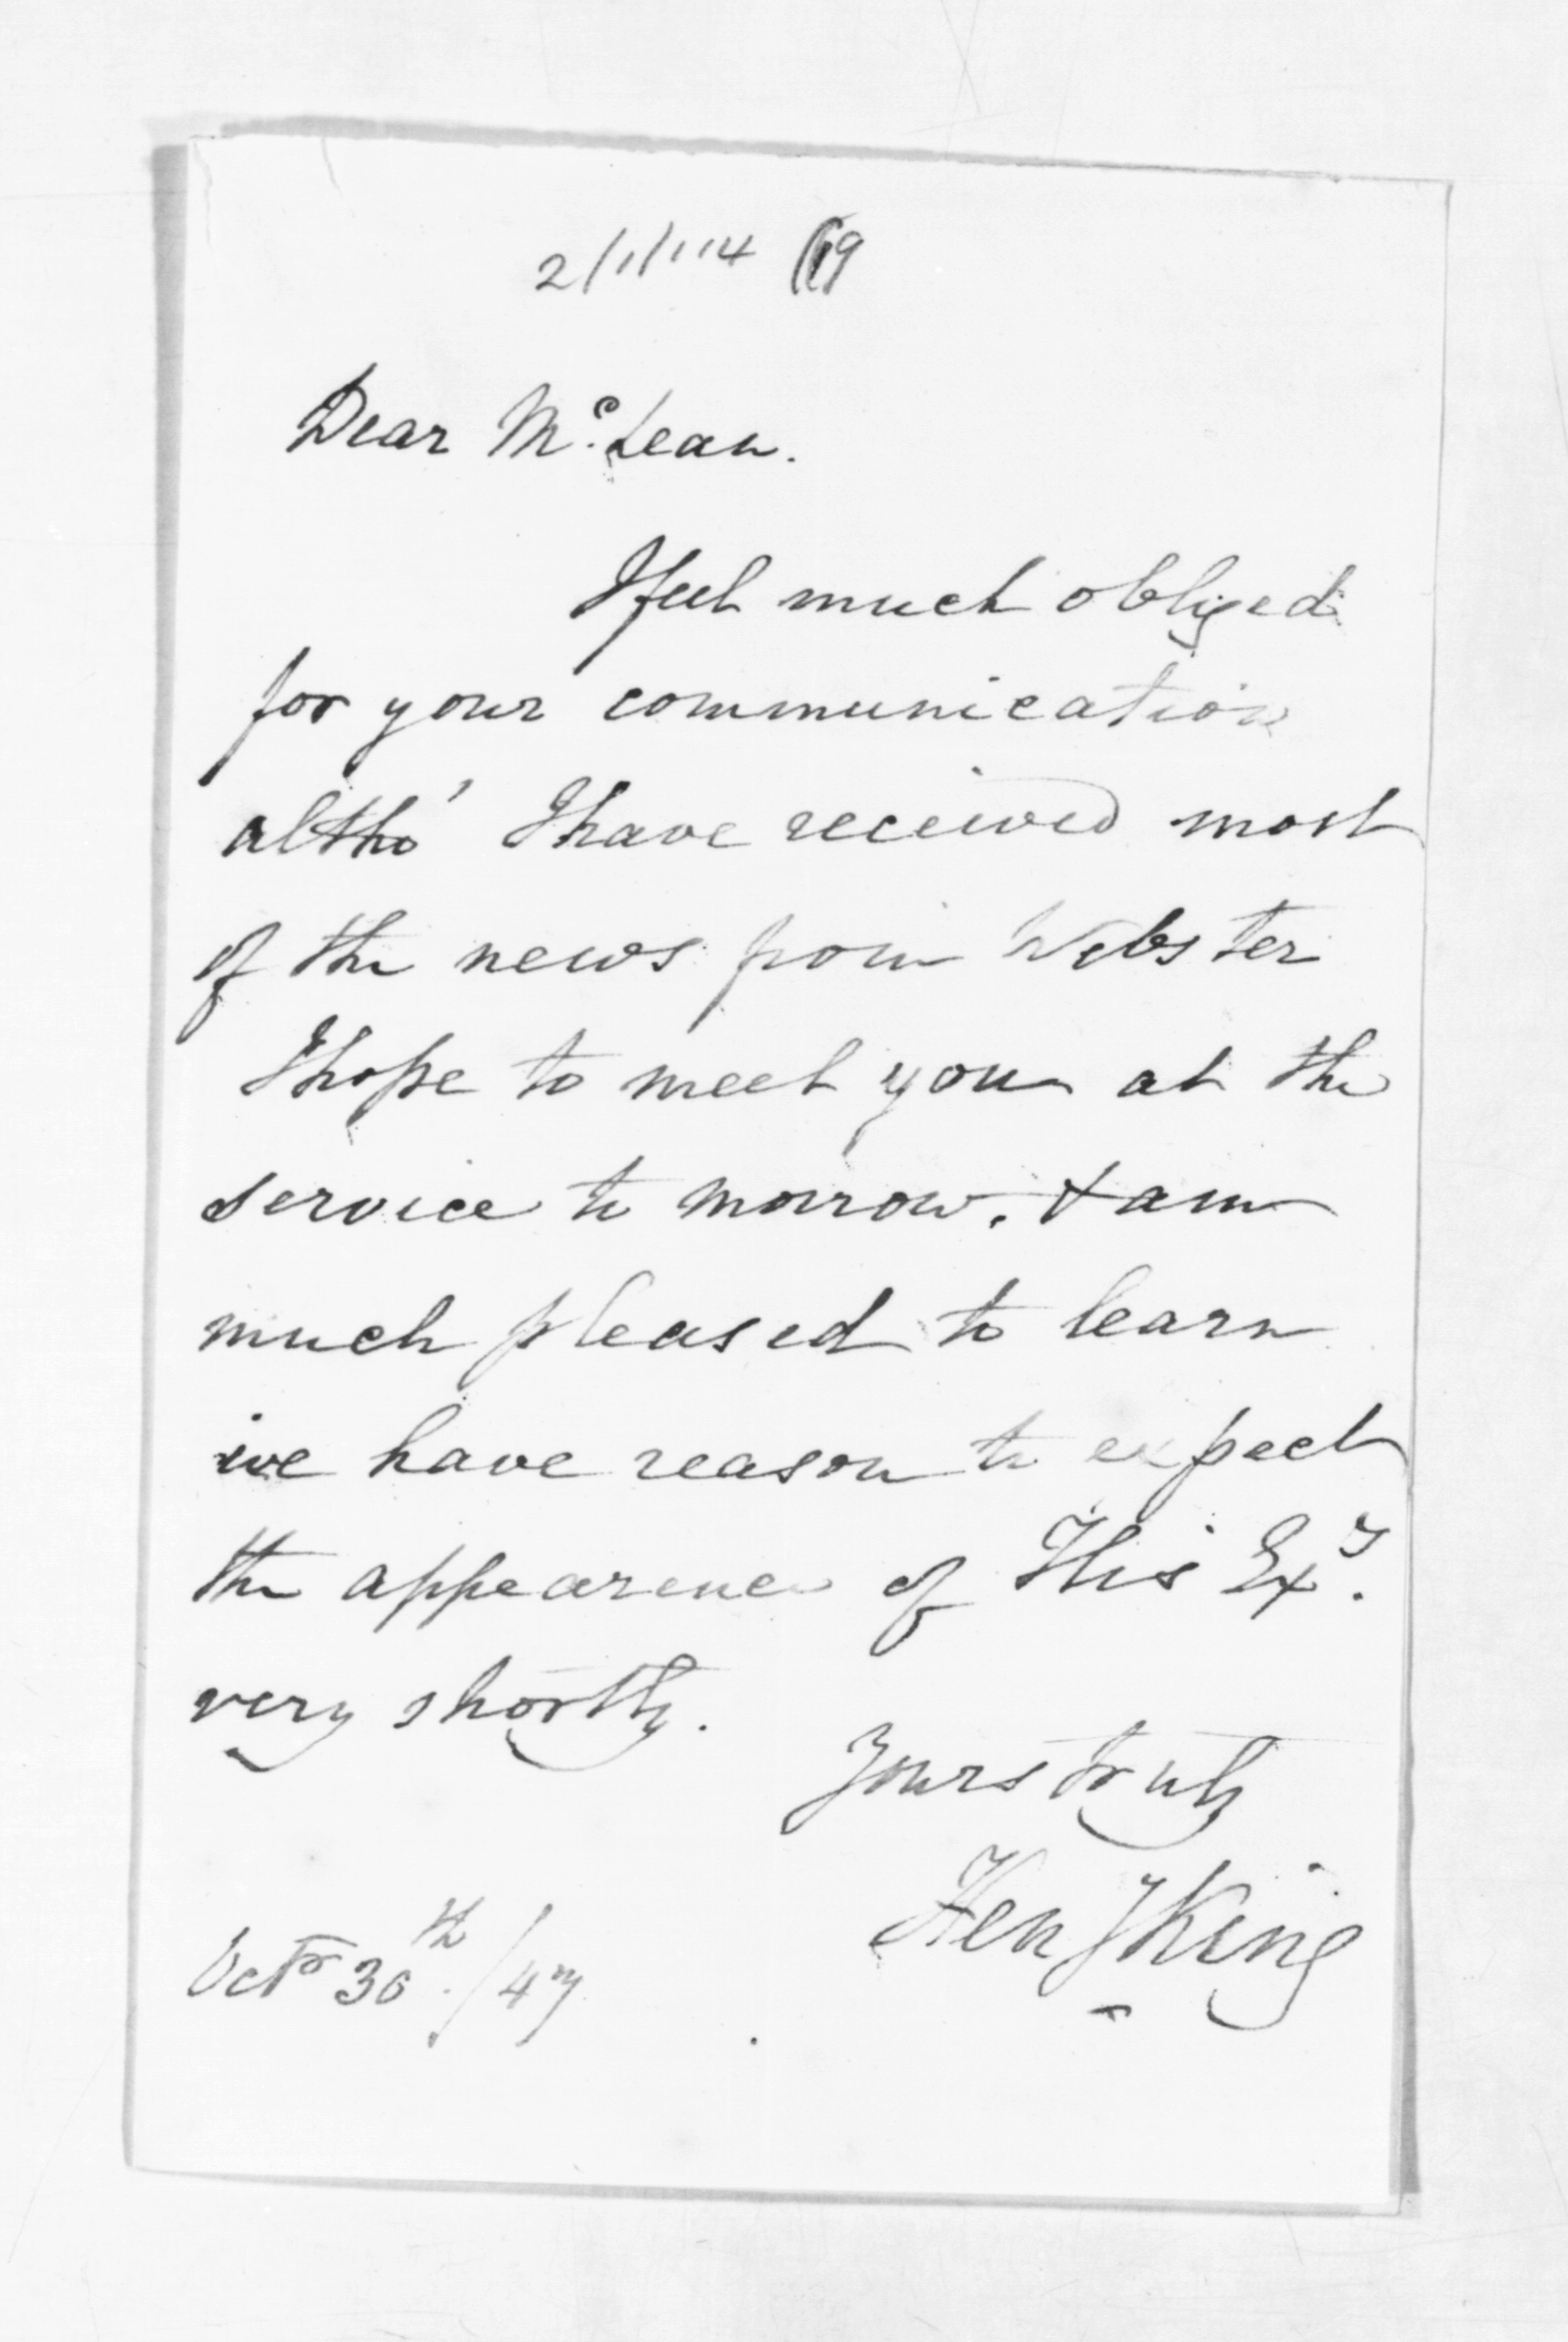 2/1/114 (19
Dear McLean.
I feel much obliged
for your communication
altho' I have received most
of the news from Webster
I hope to meet you at the
service to morrow. & am
much pleased to learn
we have reason to expect
the appearence of His Exy.
very shortly.
Yours truly
Hen J King
Octr 30th./47